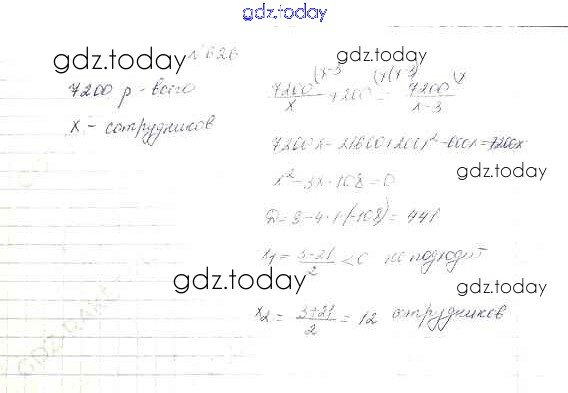 gdz.today
gdz.today № 626 gdz.today
7200 р - всего
х - сотрудников
7200/x (x-3 + 200 (x(x-3) = 7200/x-3 (x
7200x - 21600 + 200x² - 600x = 7200x
gdz.today
x² - 3x - 108 = 0
D = 9 - 4·1·(-108) = 441
x1 = 3-21/2 < 0 не подходит
gdz.today
gdz.today
x2 = 3+21/2 = 12 сотрудников